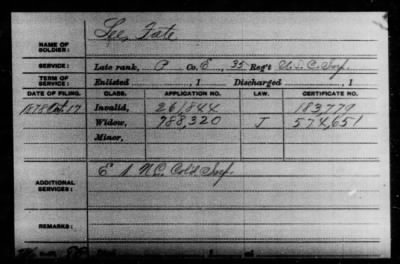 Lee, Fate
NAME OF SOLDIER:
SERVICE: Late rank, P Co. E, 35 Reg't U.S.C. Inf.
TERM OF SERVICE: Enlisted , 1 Discharged , 1
DATE OF FILING. CLASS. APPLICATION NO. LAW. CERTIFICATE NO.
1878 Oct. 17 Invalid, 261,844 183,779
Widow, 788,320 J 574,651
Minor,
E 1 N.C. Cold Inf.
ADDITIONAL SERVICES:
REMARKS: